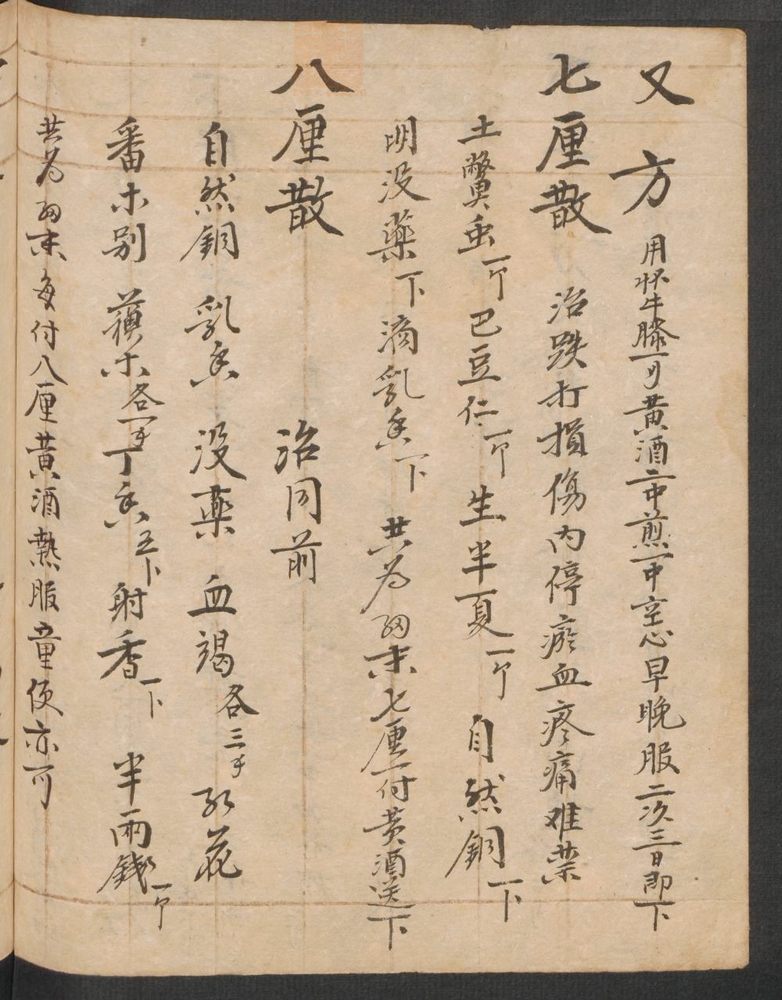 又方 用怀牛膝一可黄酒二中煎一中空心早晚服二次三日即下
七厘散 治跌打損傷内停瘀血疼痛难禁
土鱉虫一 巴豆仁一 生半夏一 自然銅一下
明没藥一下 滴乳香一下 共为細末七厘一付黄酒送下
八厘散 治同前
自然銅 乳香 没藥 血竭各三 红花
番木别 蘓木各一 丁香五下 射香一下 半兩錢一
共为細末每付八厘黄酒热服童便亦可